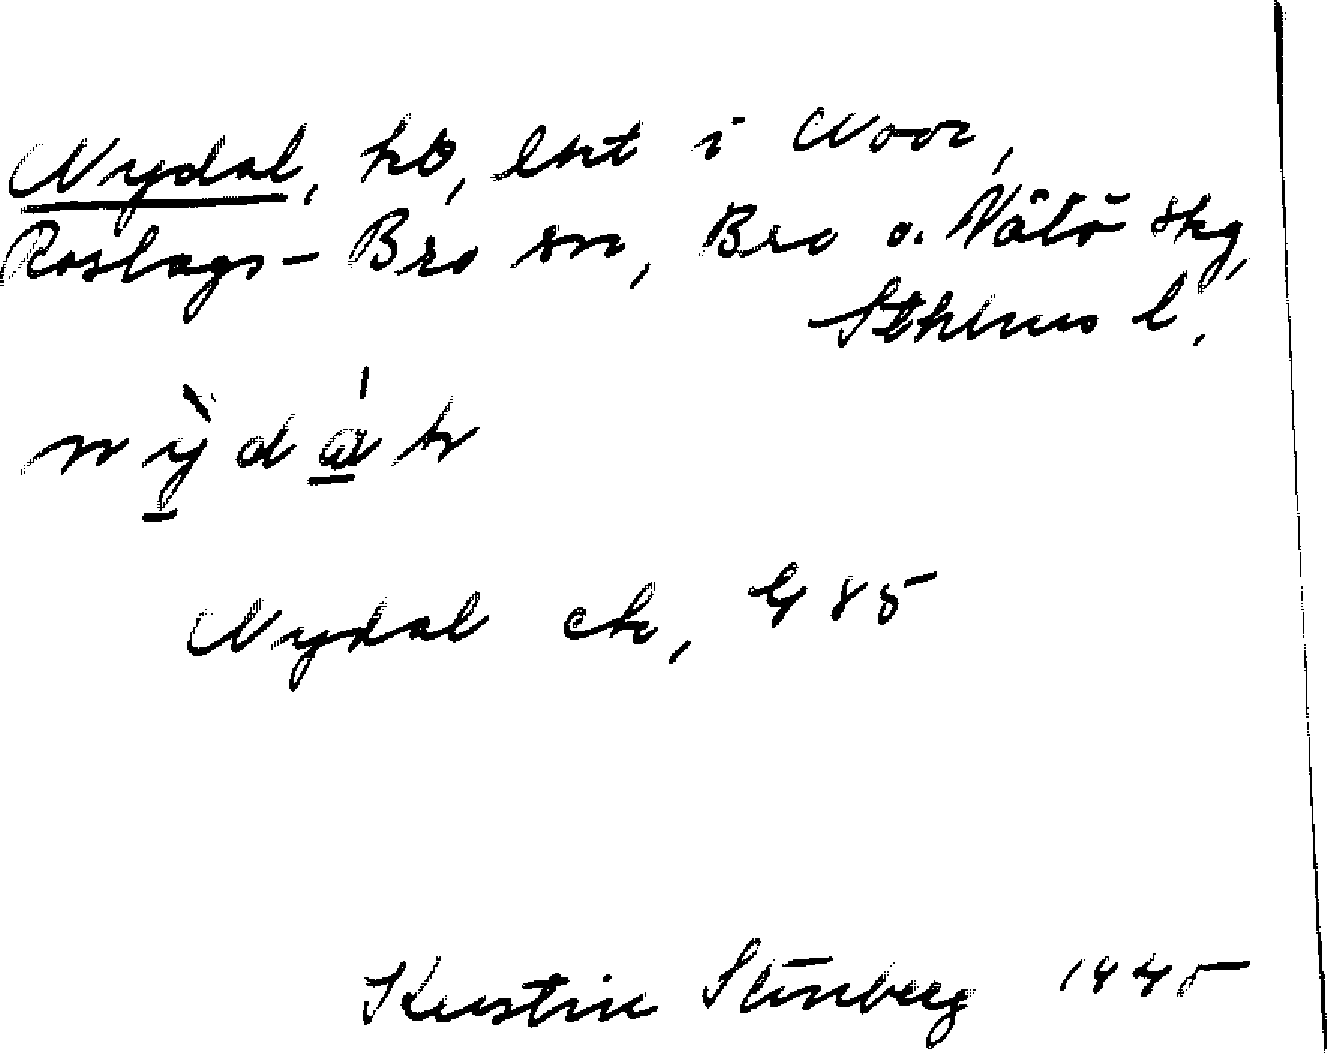 Nydal, hb, lht i Noor,
Roslags-Bro sn, Bro o. Vätö skg,
Sthlms l.
nỳdá
Nydal ek, G 85
Kerstin Stenberg 1945